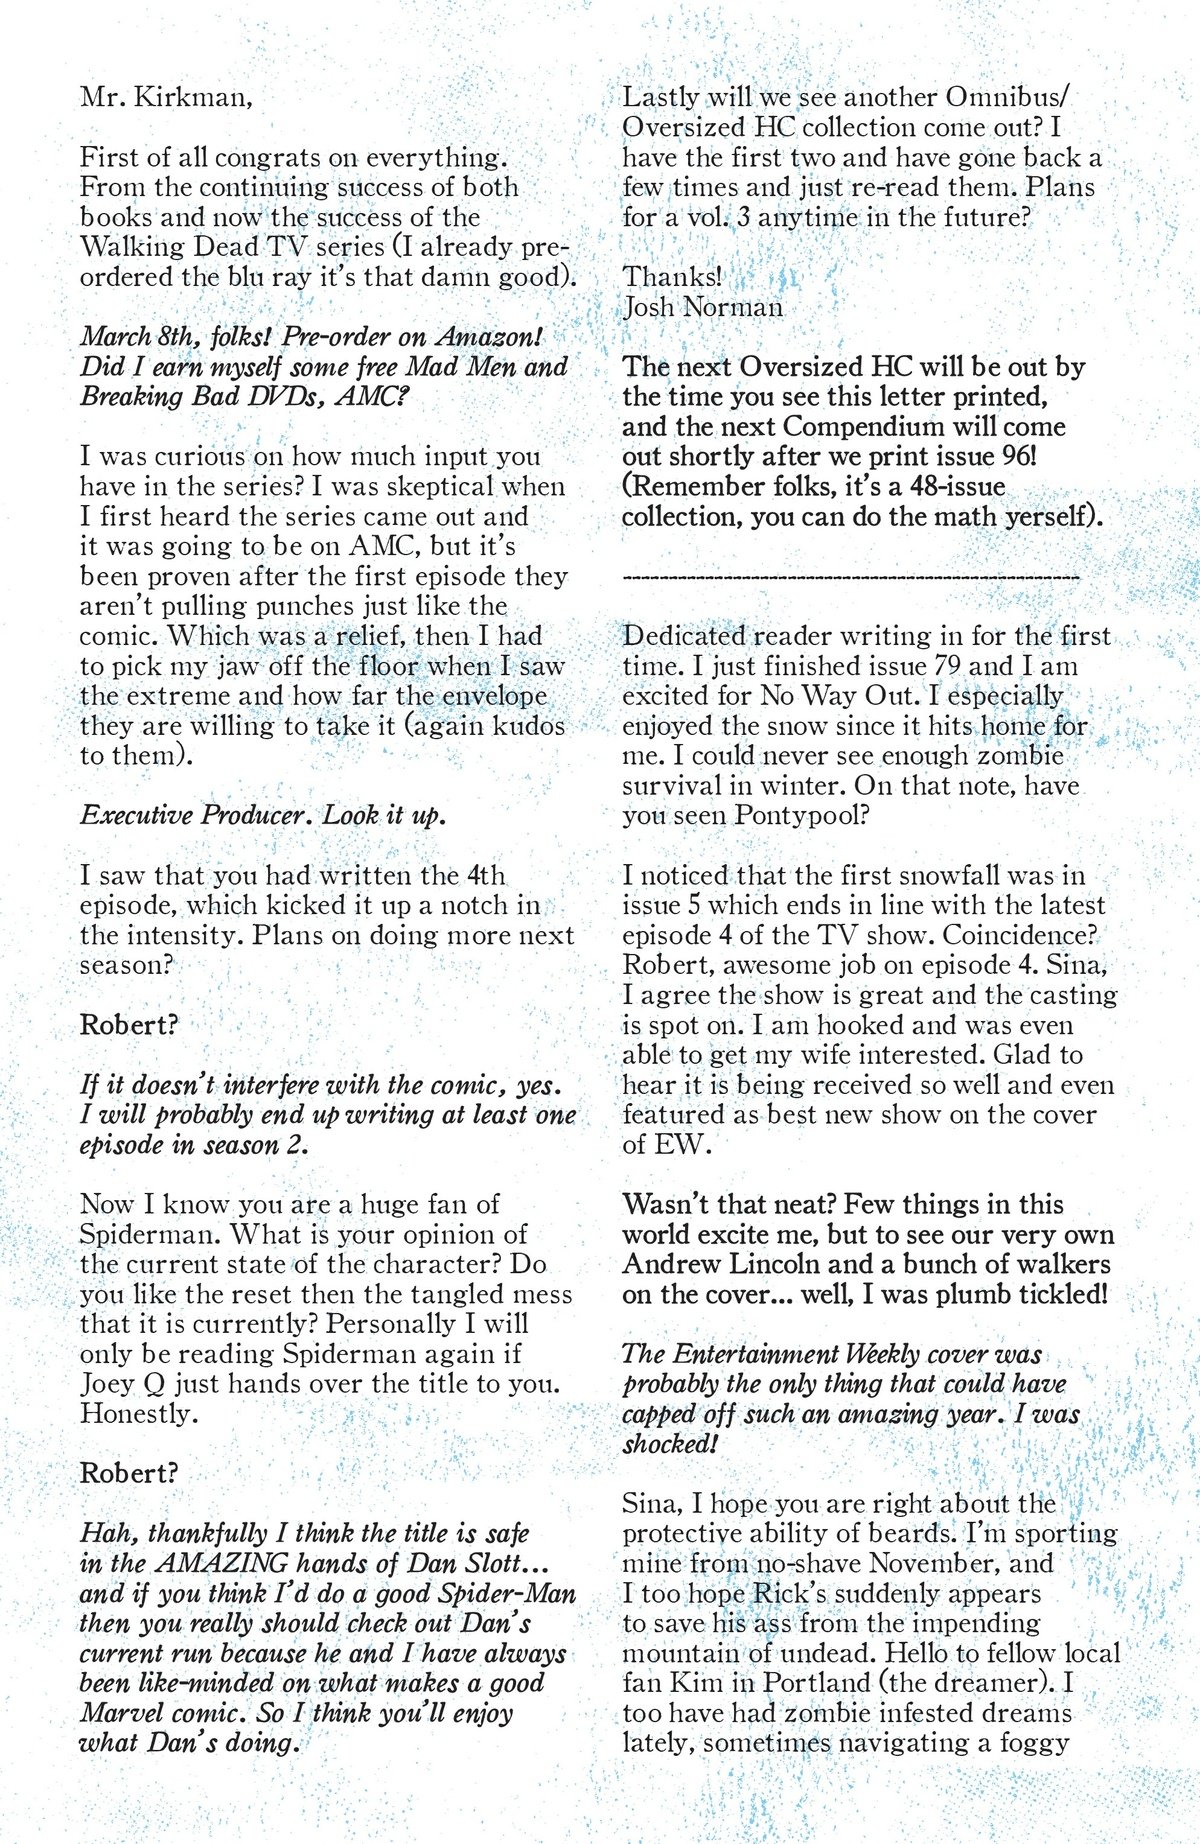 Mr. Kirkman,
First of all congrats on everything.
From the continuing success of both
books and now the success of the
Walking Dead TV series (I already pre-
ordered the blu ray it's that damn good).
March 8th, folks! Pre-order on Amazon!
Did I earn myself some free Mad Men and
Breaking Bad DVDs, AMC?
I was curious on how much input you
have in the series? I was skeptical when
I first heard the series came out and
it was going to be on AMC, but it's
been proven after the first episode they
aren't pulling punches just like the
comic. Which was a relief, then I had
to pick my jaw off the floor when I saw
the extreme and how far the envelope
they are willing to take it (again kudos
to them).
Executive Producer. Look it up.
I saw that you had written the 4th
episode, which kicked it up a notch in
the intensity. Plans on doing more next
season?
Robert?
If it doesn't interfere with the comic, yes.
I will probably end up writing at least one
episode in season 2.
Now I know you are a huge fan of
Spiderman. What is your opinion of
the current state of the character? Do
you like the reset then the tangled mess
that it is currently? Personally I will
only be reading Spiderman again if
Joey Q just hands over the title to you.
Honestly.
Robert?
Hah, thankfully I think the title is safe
in the AMAZING hands of Dan Slott...
and if you think I'd do a good Spider-Man
then you really should check out Dan's
current run because he and I have always
been like-minded on what makes a good
Marvel comic. So I think you'll enjoy
what Dan's doing.
Lastly will we see another Omnibus/
Oversized HC collection come out? I
have the first two and have gone back a
few times and just re-read them. Plans
for a vol. 3 anytime in the future?
Thanks!
Josh Norman
The next Oversized HC will be out by
the time you see this letter printed,
and the next Compendium will come
out shortly after we print issue 96!
(Remember folks, it's a 48-issue
collection, you can do the math yerself).
--------------------------------------------------
Dedicated reader writing in for the first
time. I just finished issue 79 and I am
excited for No Way Out. I especially
enjoyed the snow since it hits home for
me. I could never see enough zombie
survival in winter. On that note, have
you seen Pontypool?
I noticed that the first snowfall was in
issue 5 which ends in line with the latest
episode 4 of the TV show. Coincidence?
Robert, awesome job on episode 4. Sina,
I agree the show is great and the casting
is spot on. I am hooked and was even
able to get my wife interested. Glad to
hear it is being received so well and even
featured as best new show on the cover
of EW.
Wasn't that neat? Few things in this
world excite me, but to see our very own
Andrew Lincoln and a bunch of walkers
on the cover... well, I was plumb tickled!
The Entertainment Weekly cover was
probably the only thing that could have
capped off such an amazing year. I was
shocked!
Sina, I hope you are right about the
protective ability of beards. I'm sporting
mine from no-shave November, and
I too hope Rick's suddenly appears
to save his ass from the impending
mountain of undead. Hello to fellow local
fan Kim in Portland (the dreamer). I
too have had zombie infested dreams
lately, sometimes navigating a foggy